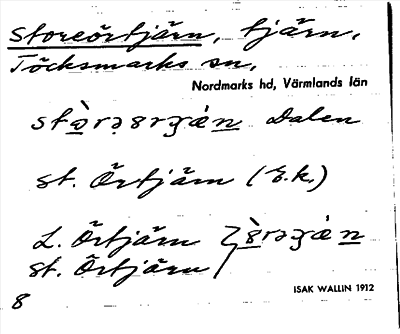 Storeörtjärn, tjärn,
Töcksmarks sn,
Nordmarks hd, Värmlands län
Dalen
St. Örtjärn (E.k.)
L. Örtjärn
St. Örtjärn
ISAK WALLIN 1912
8